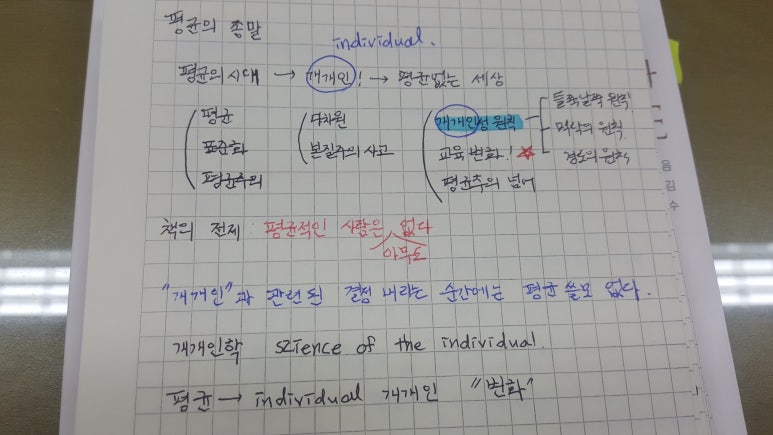 평균의 종말
individual.
평균의 시대 → 개개인! → 평균없는 세상
평균
표준화
평균주의
다차원
본질주의 사고
개개인성 원칙
교육 변화!
평균주의 넘어
들쭉날쭉 원칙
맥락의 원칙
경로의 원칙
책의 전제 : 평균적인 사람은 아무도 없다
"개개인"과 관련된 결정 내리는 순간에는 평균 쓸모 없다.
개개인학 science of the individual.
평균 → individual 개개인 "변화"
음
김
수